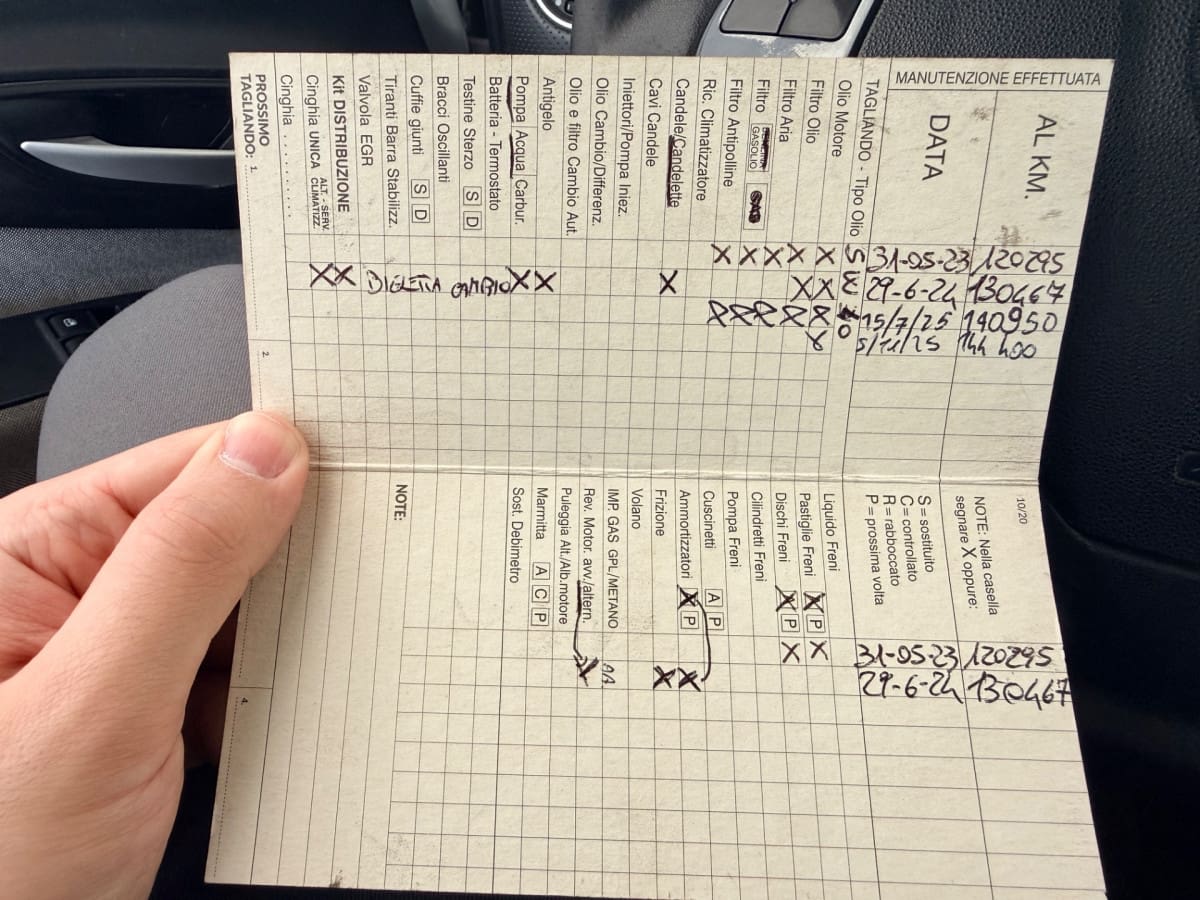 MANUTENZIONE EFFETTUATA
AL KM. 120295 130467 140950 144 400
DATA 31-05-23 29-6-24 15/7/25 5/11/25
TAGLIANDO - Tipo Olio
Olio Motore
Filtro Olio X X X X
Filtro Aria X X X
Filtro GASOLIO X X
Filtro Antipolline X X
Ric. Climatizzatore X X
Candele/Candelette
Cavi Candele X
Iniettori/Pompa Iniez.
Olio Cambio/Differenz.
Olio e filtro Cambio Aut.
Antigelo X
Pompa Acqua Carbur. X
Batteria - Termostato
Testine Sterzo S D
Bracci Oscillanti
Cuffie giunti S D
Tiranti Barra Stabilizz.
Valvola EGR
Kit DISTRIBUZIONE X
Cinghia UNICA ALT. - SERV. CLIMATIZZ. X
Cinghia . . . . . . . . . .
PROSSIMO
TAGLIANDO: 1. 2.
10/20
NOTE: Nella casella
segnare X oppure:
S = sostituito
C = controllato
R = rabboccato
P = prossima volta
120295 130467
31-05-23 29-6-24
Liquido Freni
Pastiglie Freni X P X
Dischi Freni X P X
Cilindretti Freni
Pompa Freni
Cuscinetti A P
Ammortizzatori X P X
Frizione X
Volano
IMP. GAS GPL/METANO
Rev. Motor. avv./altern. X
Puleggia Alt./Alb.motore
Marmita A C P
Sost. Debimetro
NOTE:
4.